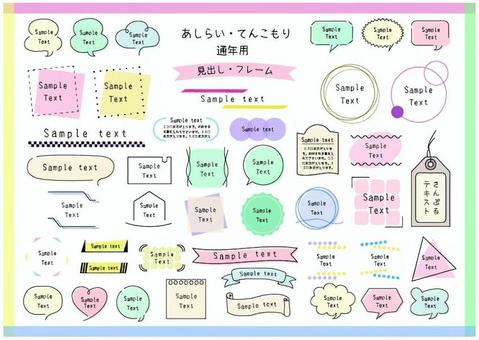 Sample
Text
Sample
Text
Sample
Text
あしらい・てんこもり
通年用
見出し・フレーム
Sample
Text
Sample
Text
Sample
Text
Sample
Text
Sample
Text
Sample text
Sample
Text
Sample
Text
Sample text
Sample text
Sample
Text
Sample text
Sample
Text
Sample text
Sample
Text
Sample
Text
Sample
Text
Sample
Text
さんぷる
テキスト
Sample
text
Sample
Text
Sample
Text
Sample
Text
Sample
Text
Sample
Text
Sample
Text
Sample text
Sample text
Sample
Text
Sample text
Sample
Text
Sample
Text
Sample
Text
Sample text
Sample
Text
Sample
Text
Sample
Text
Sample
Text
Sample text
Sample
Text
Sample
Text
Sample
Text